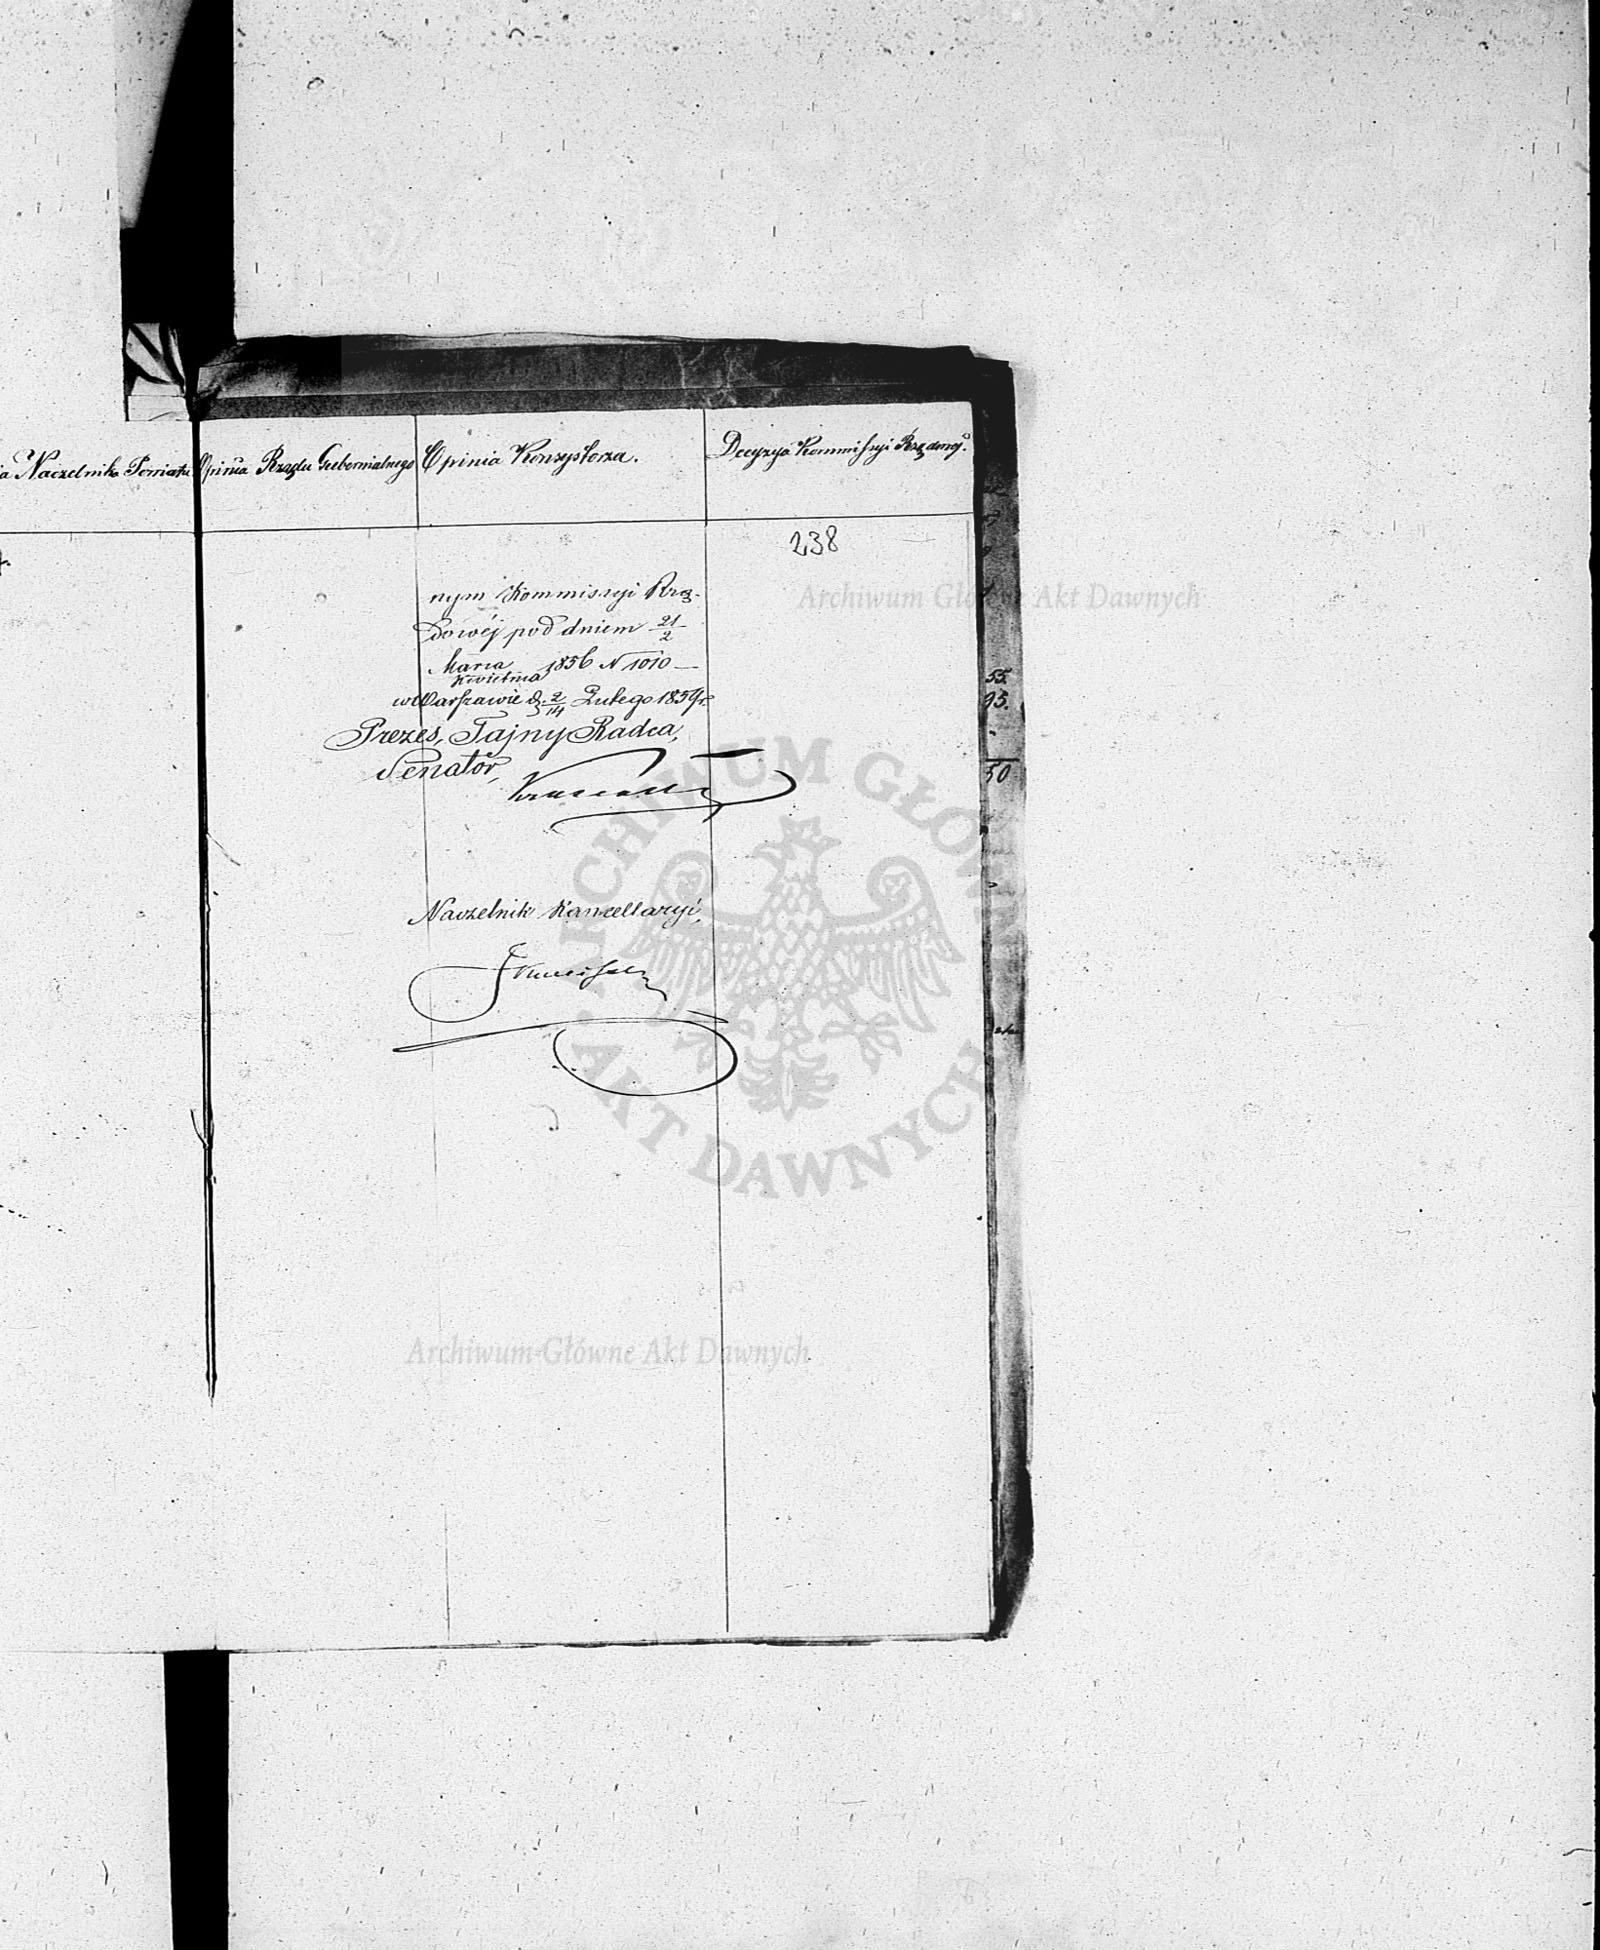 Naczelnika Powiatu
Opinia Rządu Gubernialnego
Opinia Konsystorza.
Decyzya Kommissyi Rządowej.
238
nym Kommissyi Rzą-
dowéj pod dniem 21/2
Marca
Kwietnia 1856 N 1010 —
w Warszawie d. 2/14 Lutego 1859 r.
Prezes, Tajny Radca,
Senator,
Naczelnik Kancellaryi,
55.
95.
50
Archiwum Główne Akt Dawnych
ARCHIWUM GŁÓWNE AKT DAWNYCH
Archiwum Główne Akt Dawnych